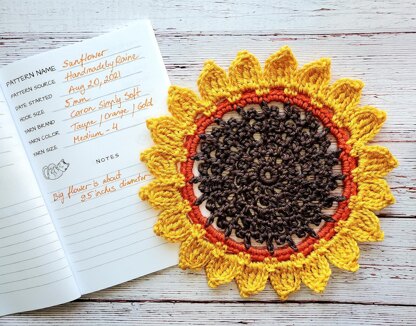 PATTERN NAME Sunflower
PATTERN SOURCE Handmade by Raine
DATE STARTED Aug 20, 2021
HOOK SIZE 5mm
YARN BRAND Caron Simply Soft
YARN COLOR Taupe / Orange / Gold
YARN SIZE Medium - 4
NOTES
Big flower is about
8.5 inches diameter